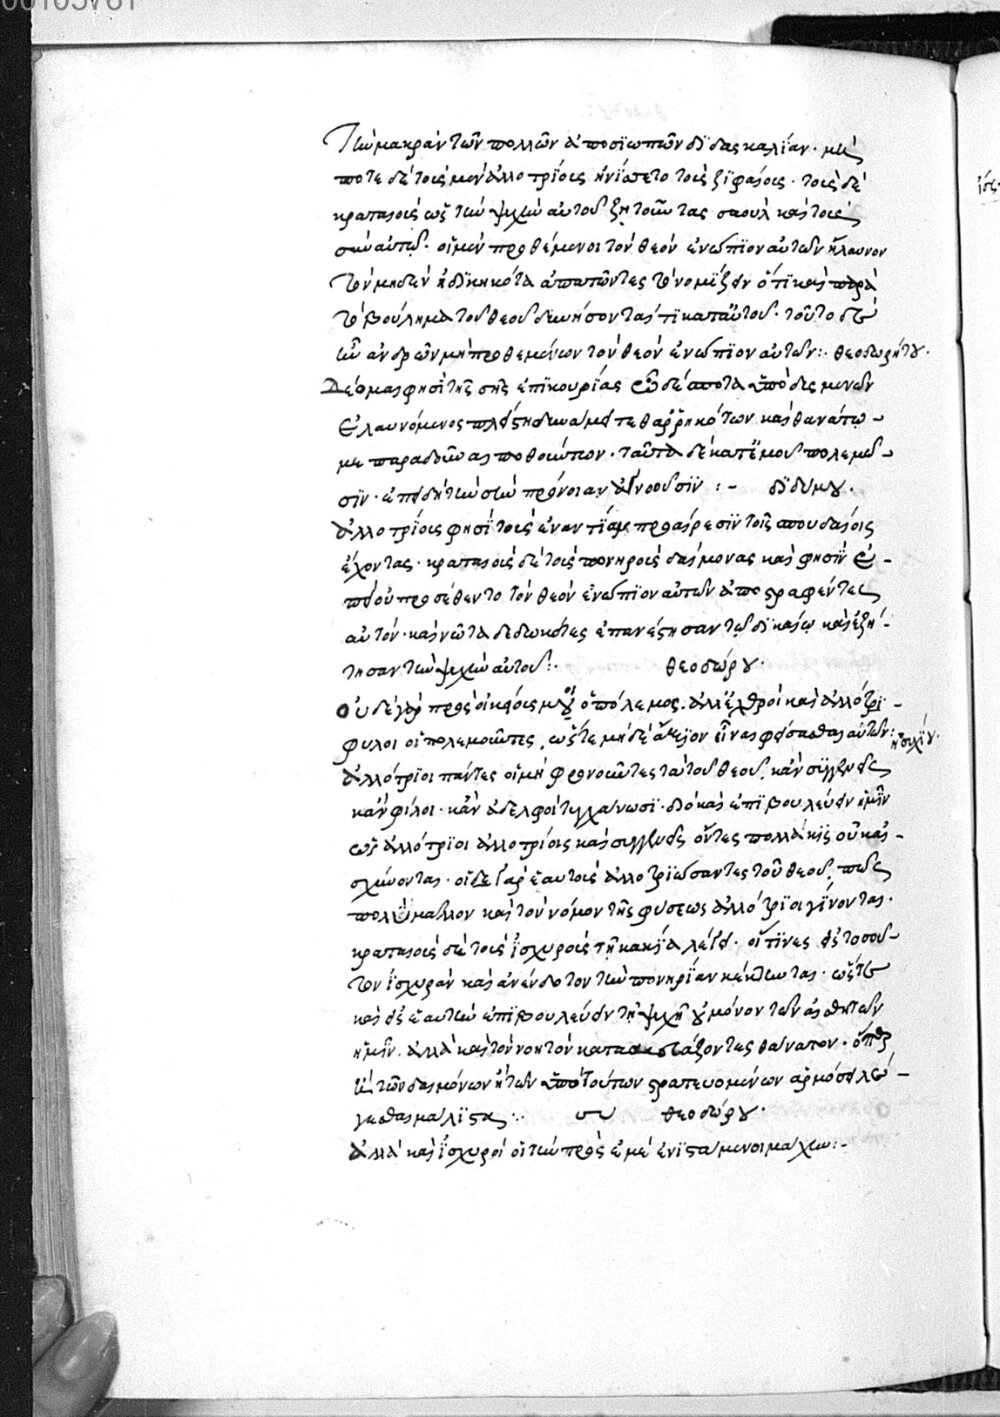 00105761
Τὴν μακρὰν τῶν πολλῶν ἀποσϊωπῶν δϊδασκαλίαν· μή
ποτε δὲ τοὺς μὲν ἀλλοτρίους ἠνίξατο τοὺς ξιφαίους· τοὺς δὲ
κραταιοὺς ὡς τὴν ψυχὴν αὐτοῦ ζητοῦντας σαοὺλ καὶ τοὺς
σὺν αὐτῷ· οἳ μὴ προθέμενοι τὸν θεὸν ἐνώπϊον αὐτῶν ἤλαυνον
τὸν μηδὲν ἠδϊκηκότα
τὸ βούλημα τοῦ θεοῦ τοῦτο δὲ
ἦν ἀνδρῶν μὴ προθεμένων τὸν θεὸν ἐνώπϊον αὐτῶν:· θεοδωρήτου·
Δέομαι φησὶ τῆς σῆς ἐπϊκουρίας ὑπὸ δυσμενῶν
ἐλαυνόμενος πλείστη δυνάμει τεθαρρηκότων καὶ θανάτῳ –
με παραδοῦναι ποθούντων· ταῦτα δὲ κατ' ἐμοῦ τολμῶ –
σϊν· ἐπειδὴ τὴν σὴν πρόνοιαν ἀγνοοῦσϊν :– δϊδύμου·
ἀλλοτρίους φησὶ τοὺς ἐναντίαν προαίρεσϊν τοῖς σπουδαίοις
ἔχοντας· κραταιοὺς δὲ τοὺς πονηροὺς δαίμονας καὶ φησὶν ἐ –
πεὶ οὐ προσέθεντο τὸν θεὸν ἐνώπϊον αὐτῶν ἀποστραφέντες
αὐτόν· καὶ νῶτα δεδωκότες ἐπανέστησαν τῷ δϊκαίῳ καὶ ἐζή –
τησαν τὴν ψυχὴν αὐτοῦ:· θεοδώρου·
Οὐδὲ γὰρ πρὸς οἰκείους μου ὁ πόλεμος. ἀλλ' ἐχθροὶ καὶ ἀλλότρϊ –
φυλοι οἱ πολεμοῦντες, ὥστε μηδὲ ἄξϊον εἶναι φείσασθαι αὐτῶν: ἡσυχϊου·
ἀλλότριοι πάντες οἱ μὴ φρονοῦντες τὰ τοῦ θεοῦ, κἂν συγγενεῖς
κἂν φίλοι· κἂν ἀδελφοὶ τυγχάνωσϊ· διὸ καὶ ἐπϊβουλεύειν ἡμῖν
ὡς ἀλλότρϊοι ἀλλοτρίοις καὶ συγγενεῖς ὄντες πολλάκϊς οὐκ αἰ –
σχύνονται· οἱ δὲ γὰρ ἑαυτοὺς ἀλλοτρϊώσαντες τοῦ θεοῦ, πῶς
πολλῷ μᾶλλον καὶ τὸν νόμον τῆς φύσεως ἀλλότρϊοι γίνονται·
κραταιοὺς δὲ τοὺς ἰσχυροὺς τῇ κακίᾳ λέγει· οἵτϊνες εἰς τοσοῦ –
τον ἰσχυρὰν καὶ ἀνένδοτον τὴν πονηρίαν κέκτηνται· ὥστε
καὶ εἰς ἑαυτὴν ἐπϊβουλεύειν τῇ ψυχῇ οὐ μόνον τῶν αἰσθητῶν
ἡμῖν. ἀλλὰ καὶ τὸν νοητὸν θάνατον· ὅπερ
ἐκ τῶν δαιμόνων ἢ τῶν ὑπὸ τούτων στρατευομένων ἁρμόσει λέ –
γεσθαι μάλϊστα :· θεοδώρου·
ἀλλὰ καὶ ἰσχυροὶ οἱ τὴν πρὸς ἐμὲ ἐνϊστάμενοι μάχην:–